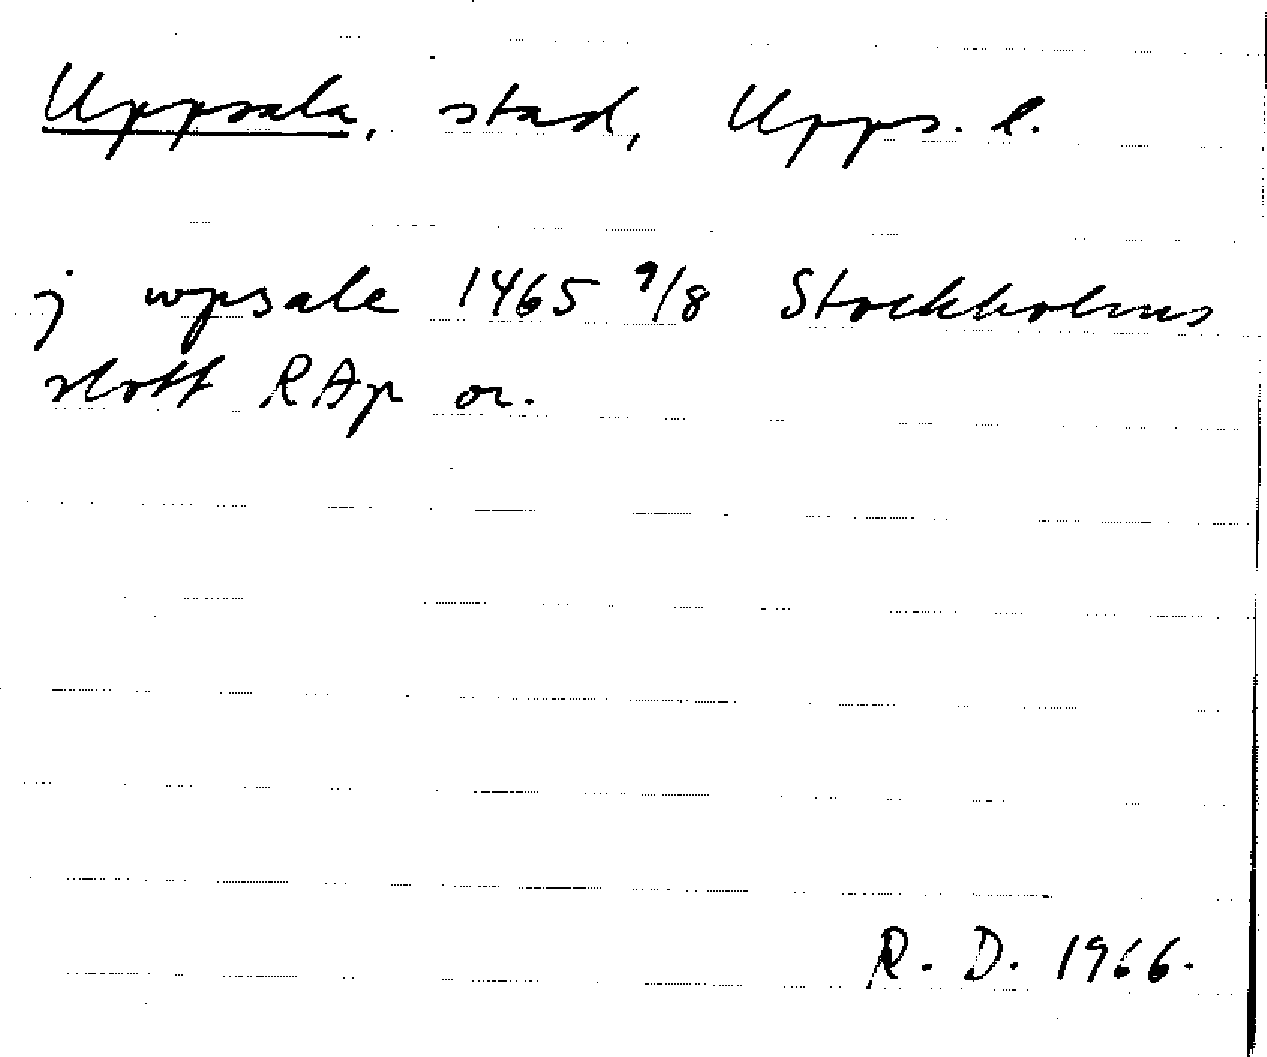 Uppsala, stad, Upps. l.
j wpsale 1465 9/8 Stockholms
slott RAp or.
R. D. 1966.